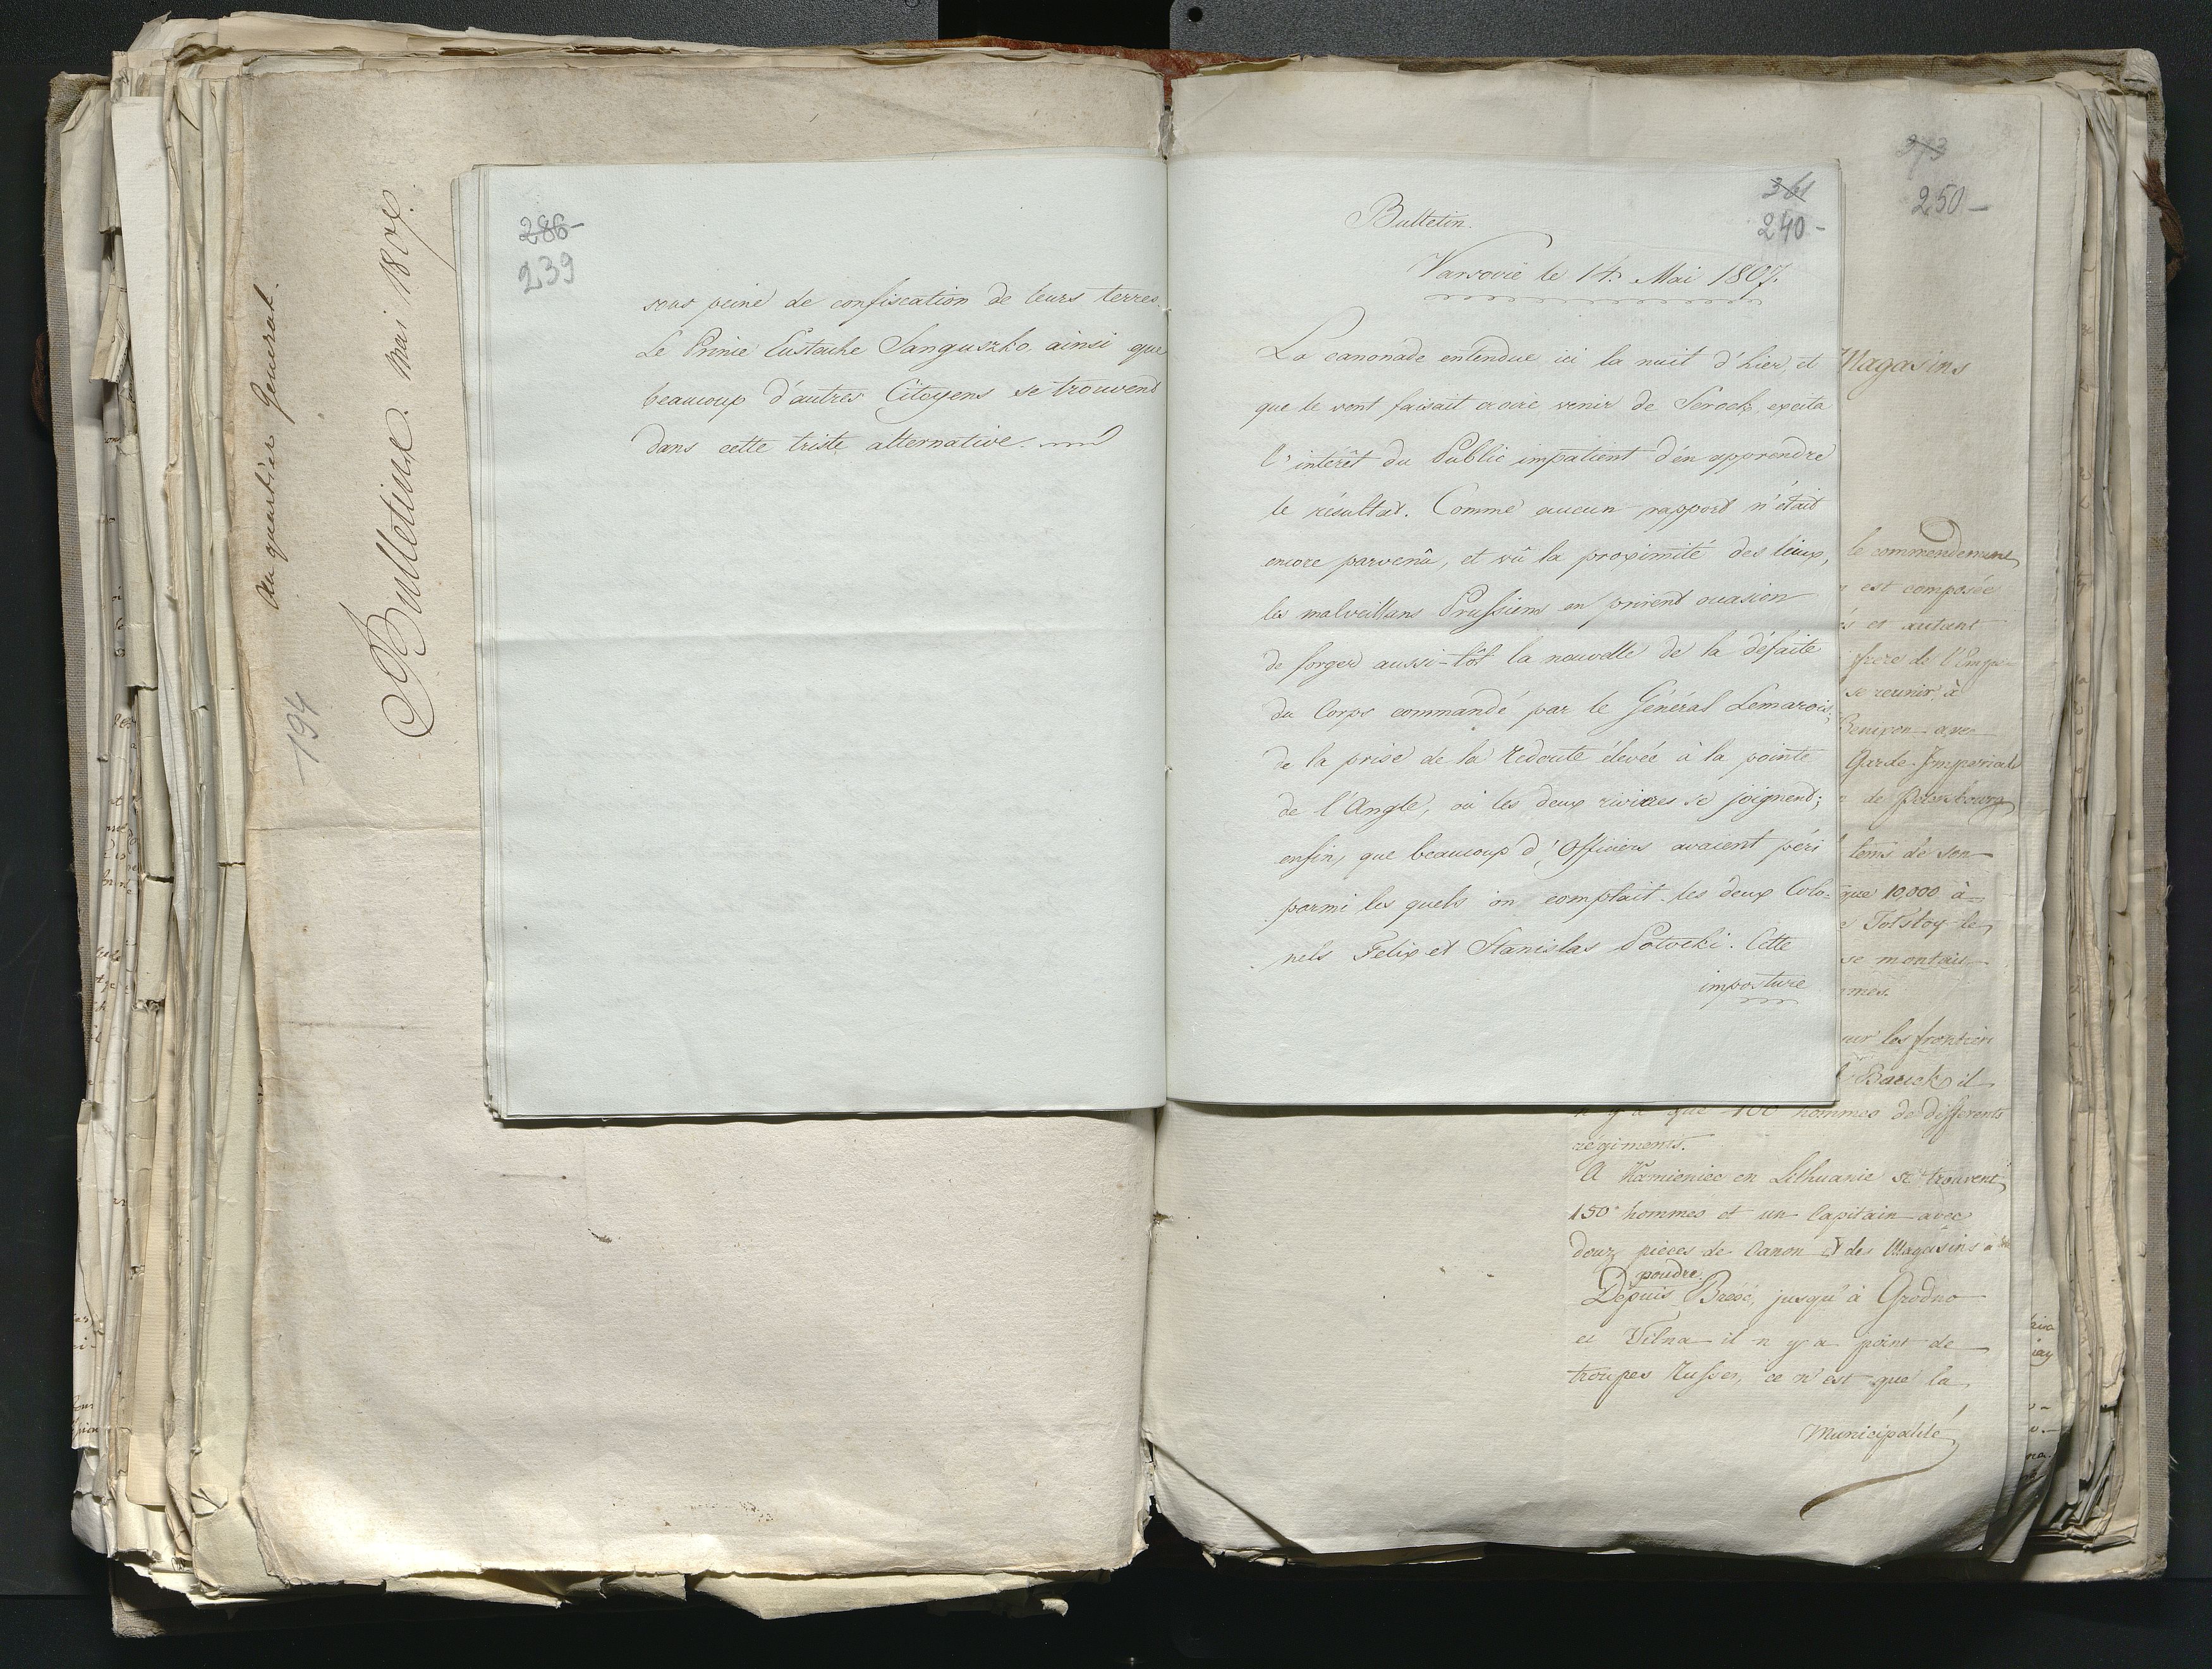 au quartier General.
Bulletins. Mai 1807.
194
286-
239
sous peine de confiscation de leurs terres.
Le Prince Eustache Sanguszko ainsi que
beaucoup d'autres Citoyens se trouvent
dans cette triste alternative.
361
240-
Bulletin.
Varsovie le 14. Mai 1807.
La canonade entendue ici la nuit d'hier, et
que le vent faisait croire venir de Serock, excita
l'intérêt du Public impatient d'en apprendre
le résultat. Comme aucun rapport n'était
encore parvenû, et vû la proximité des lieux,
les malveillans Prussiens en prirent ouasion
de forger aussi-tôt la nouvelle de la défaite
du Corps commandé par le Général Lemarois;
de la prise de la Redoute élevée à la pointe
de l'Angle, où les deux rivieres se joignent;
enfin, que beaucoup d'Officiers avaient péri
parmi les quels on comptait les deux Colo-
nels Felix et Stanislas Potocki. Cette
imposture
273
250-
Magasins
le commendement
est composée
et autant
frere de l'Empe-
se reunir à
Benixon avec
Garde Imperiale
de Petersbourg
tems de son
que 10,000 à
Tolstoy le
se montait
mmes.
sur les frontieri
il
n'y a que 100 hommes de differents
regiments.
A Kamieniec en Lithuanie se trouvent
150 hommes et un Capitain avec
douz pieces de Canon et des Magasins à
poudre.
Depuis Brèsc, jusqu'à Grodno
et Vilna il n'y a point de
troupes Russes, ce n'est que la
Municipalité